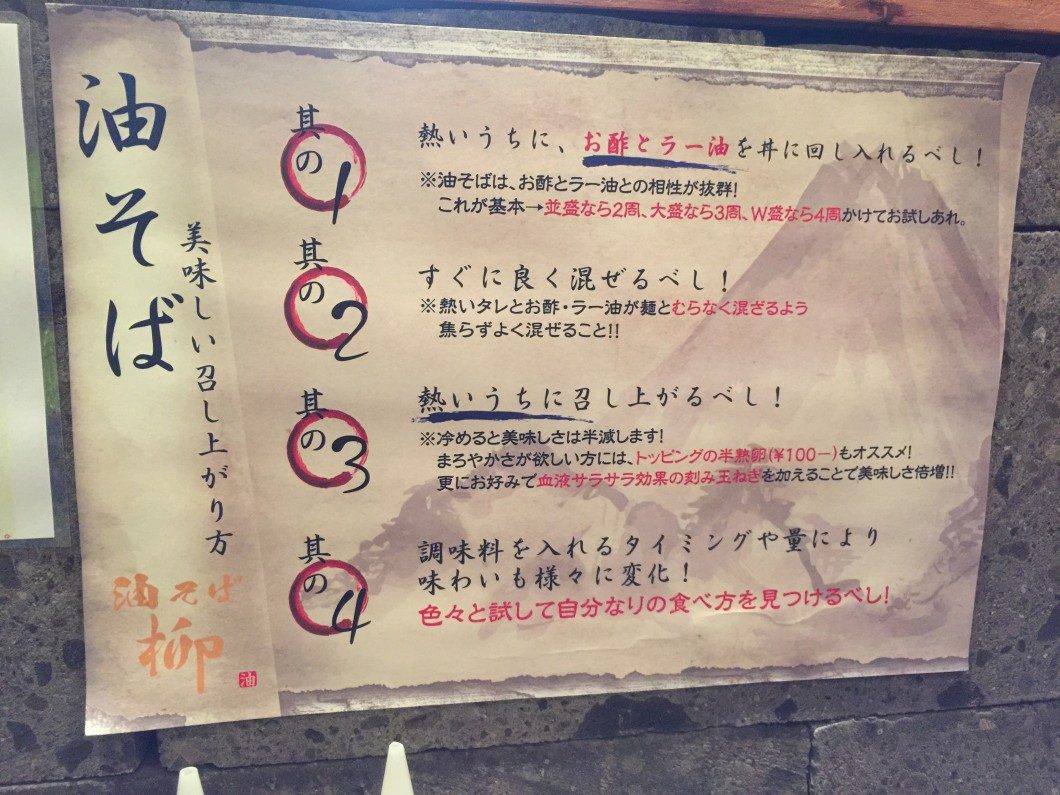 油そば
美味しい召し上がり方
其の1
熱いうちに、お酢とラー油を丼に回し入れるべし！
※油そばは、お酢とラー油との相性が抜群！
これが基本→並盛なら2周、大盛なら3周、W盛なら4周かけてお試しあれ。
其の2
すぐに良く混ぜるべし！
※熱いタレとお酢・ラー油が麺とむらなく混ざるよう
焦らずよく混ぜること!!
其の3
熱いうちに召し上がるべし！
※冷めると美味しさは半減します！
まろやかさが欲しい方には、トッピングの半熟卵(¥100ー)もオススメ！
更にお好みで血液サラサラ効果の刻み玉ねぎを加えることで美味しさ倍増!!
其の4
調味料を入れるタイミングや量により
味わいも様々に変化！
色々と試して自分なりの食べ方を見つけるべし！
油そば
柳
油